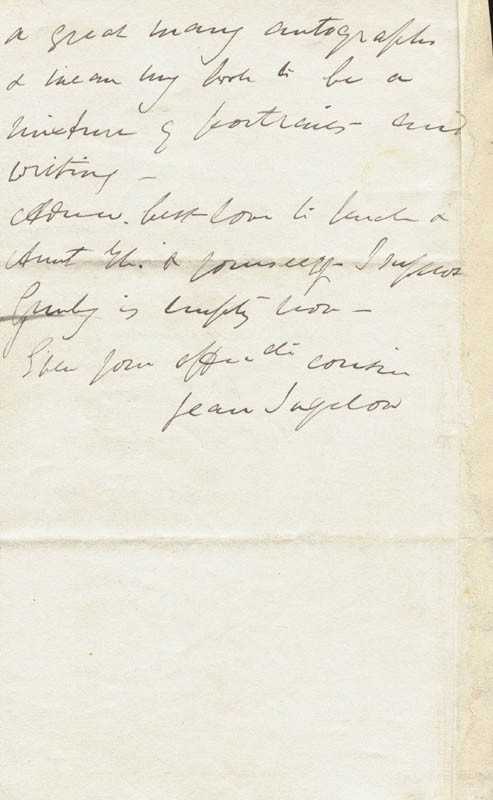 a great many autographs
& mean my book to be a
mixture of portraits and
writing –
best love to Uncle &
Aunt & yourself – I suppose
is empty now –
Ever your affec^te cousin
Jean Ingelow